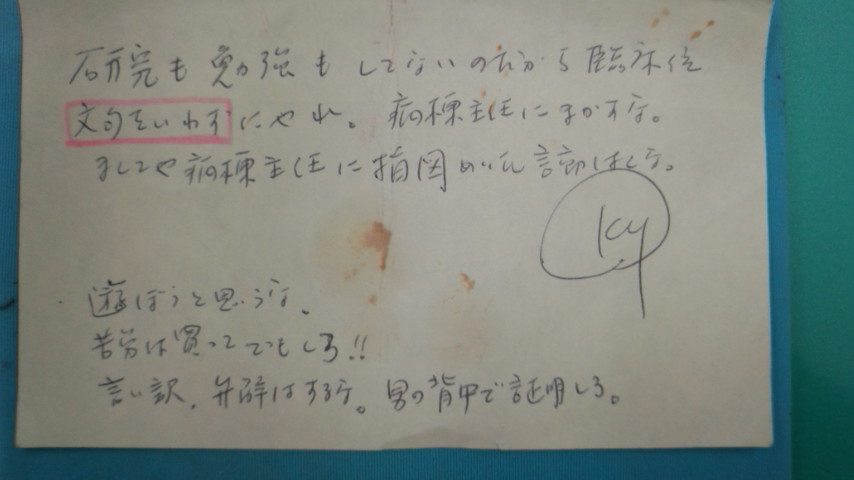 研究も勉強もしてないのだから臨床位
文句をいわずにやれ。病棟主任にまかすな。
ましてや病棟主任に指図めいた言動はしな。
Ky
遊ぼうと思うな、
苦労は買ってでもしろ!!
言い訳、弁解はするな。男の背中で証明しろ。